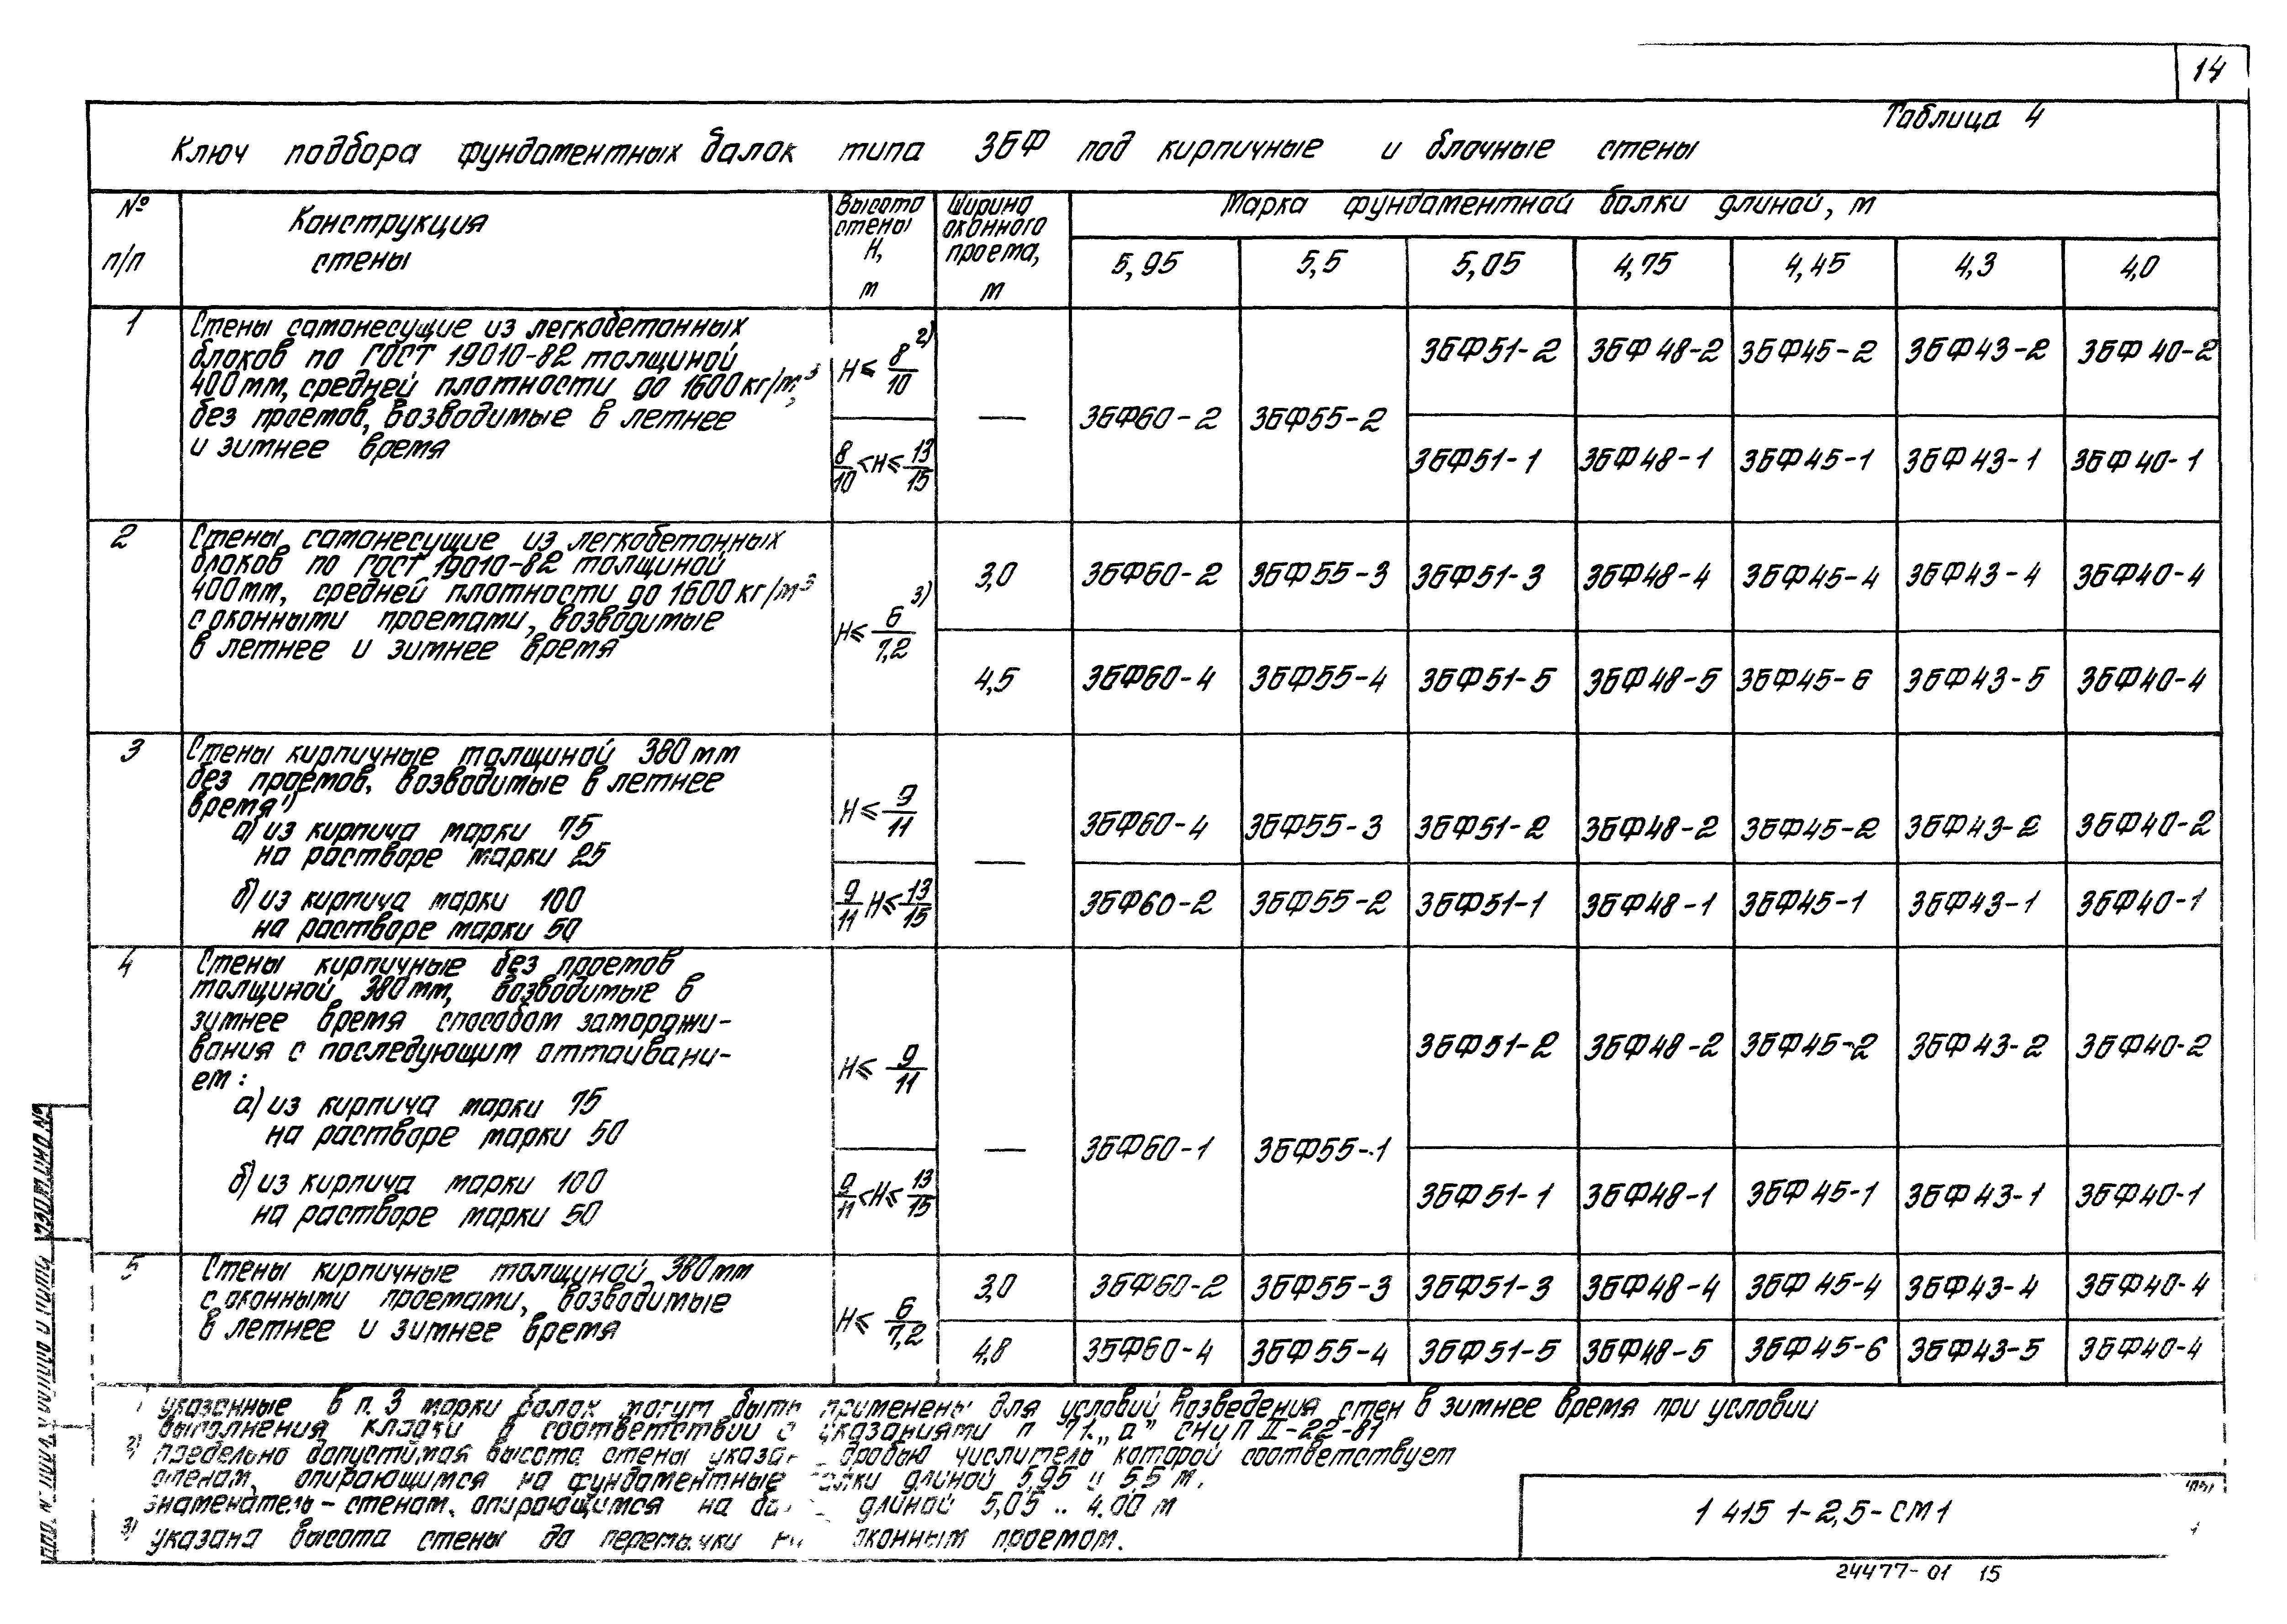 14
Таблица 4
Ключ подбора фундаментных балок типа 3БФ под кирпичные и блочные стены
№ п/п
Конструкция стены
Высота стены Н, м
Ширина оконного проема, м
Марка фундаментной балки длиной, м
5,95 5,5 5,05 4,75 4,45 4,3 4,0
1
Стены самонесущие из легкобетонных
блоков по ГОСТ 19010-82 толщиной
400мм, средней плотности до 1600кг/м³,
без проемов, возводимые в летнее
и зимнее время
Н≤ 8/10 2)
8/10 <Н≤ 13/15
—
3БФ60-2 3БФ55-2
3БФ51-2 3БФ48-2 3БФ45-2 3БФ43-2 3БФ40-2
3БФ51-1 3БФ48-1 3БФ45-1 3БФ43-1 3БФ40-1
2
Стены самонесущие из легкобетонных
блоков по ГОСТ 19010-82 толщиной
400мм, средней плотности до 1600кг/м³
с оконными проемами, возводимые
в летнее и зимнее время
Н≤ 6/7,2 3)
3,0 3БФ60-2 3БФ55-3 3БФ51-3 3БФ48-4 3БФ45-4 3БФ43-4 3БФ40-4
4,5 3БФ60-4 3БФ55-4 3БФ51-5 3БФ48-5 3БФ45-6 3БФ43-5 3БФ40-4
3
Стены кирпичные толщиной 380мм
без проемов, возводимые в летнее
время 1)
а) из кирпича марки 75
на растворе марки 25
б) из кирпича марки 100
на растворе марки 50
Н≤ 9/11
9/11 Н≤ 13/15
—
3БФ60-4 3БФ55-3 3БФ51-2 3БФ48-2 3БФ45-2 3БФ43-2 3БФ40-2
3БФ60-2 3БФ55-2 3БФ51-1 3БФ48-1 3БФ45-1 3БФ43-1 3БФ40-1
4
Стены кирпичные без проемов
толщиной 380мм, возводимые в
зимнее время способом заморажи-
вания с последующим оттаивани-
ем:
а) из кирпича марки 75
на растворе марки 50
б) из кирпича марки 100
на растворе марки 50
Н≤ 9/11
9/11 <Н≤ 13/15
—
3БФ60-1 3БФ55-1
3БФ51-2 3БФ48-2 3БФ45-2 3БФ43-2 3БФ40-2
3БФ51-1 3БФ48-1 3БФ45-1 3БФ43-1 3БФ40-1
5
Стены кирпичные толщиной 380мм
с оконными проемами, возводимые
в летнее и зимнее время
Н≤ 6/7,2
3,0 3БФ60-2 3БФ55-3 3БФ51-3 3БФ48-4 3БФ45-4 3БФ43-4 3БФ40-4
4,8 3БФ60-4 3БФ55-4 3БФ51-5 3БФ48-5 3БФ45-6 3БФ43-5 3БФ40-4
указанные в п. 3 марки балок могут быть применены для условий возведения стен в зимнее время при условии
выполнения кладки в соответствии с указаниями п 7.1 „а" СНиП II-22-81
2) предельно допустимая высота стены дробью числитель которой соответствует
стенам, опирающимся на фундаментные балки длиной 5,95 и 5,5 м,
знаменатель – стенам, опирающимся на длиной 5,05 .. 4.00 м
3) указана высота стены до перемычки оконным проемом.
1 415 1-2,5-СМ1
24477-01 15